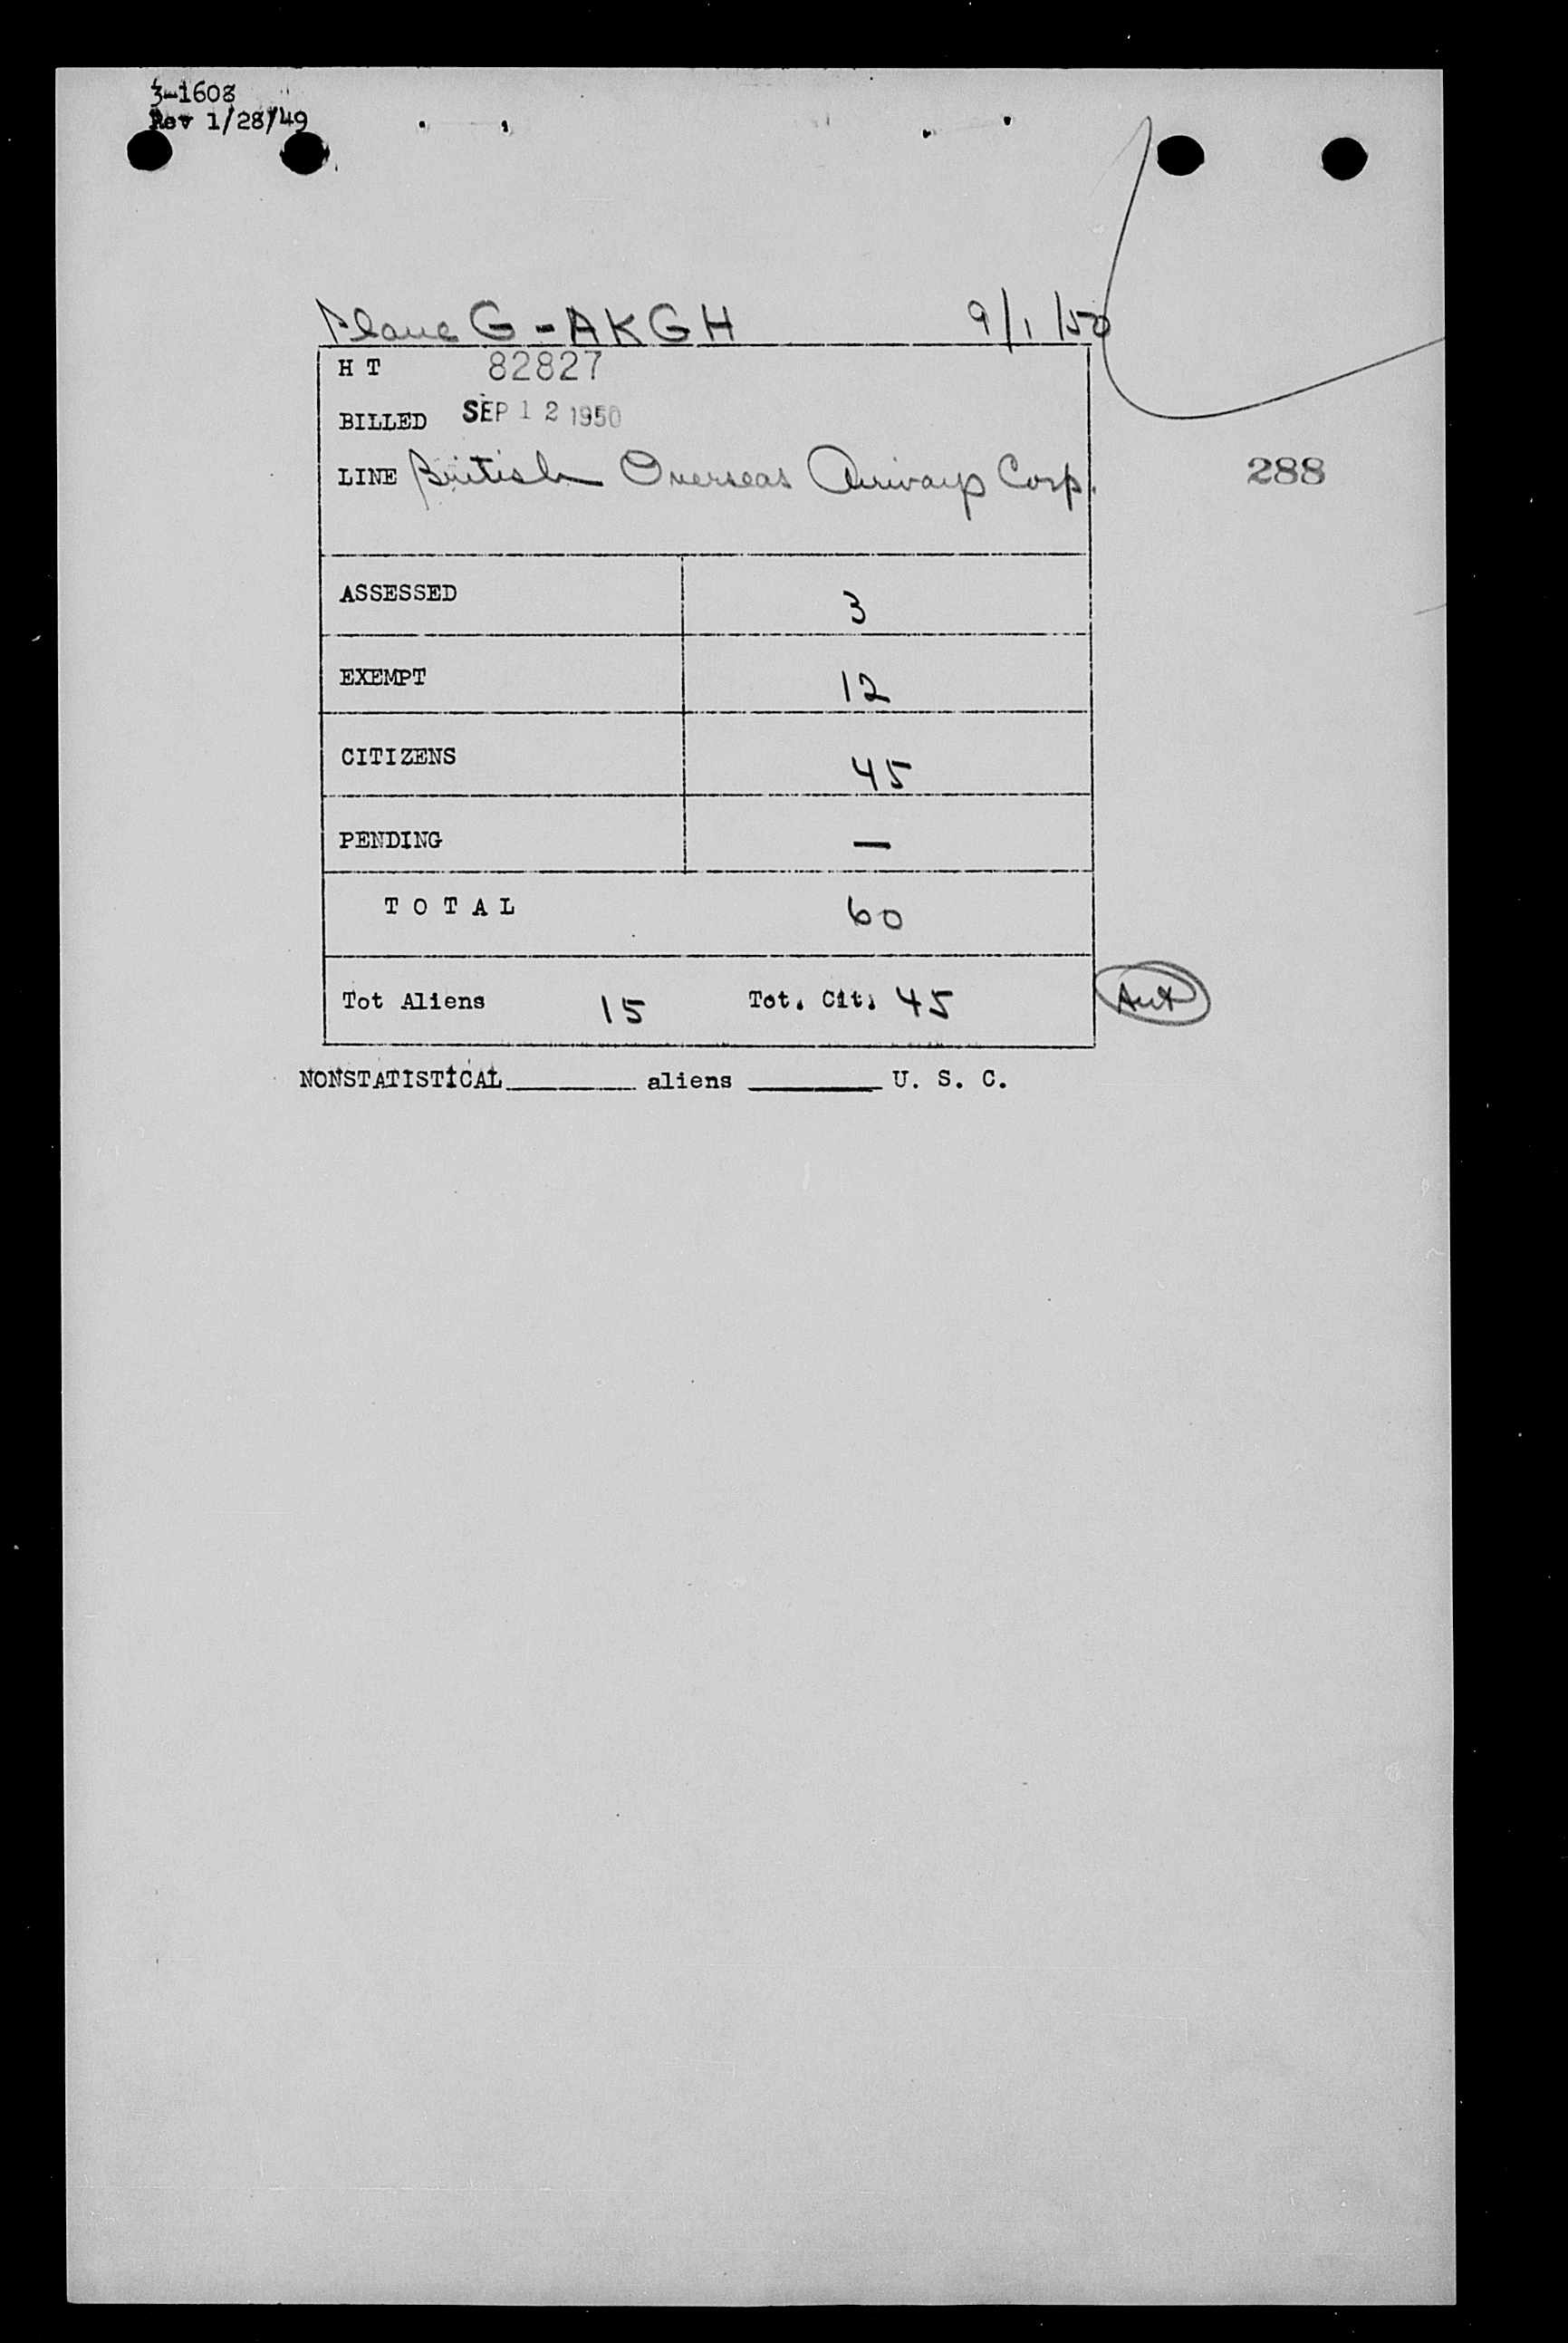 3-1608
Rev 1/28/49
Plane G-AKGH 9/1/50
H T 82827
BILLED SEP 12 1950
LINE British Overseas Airways Corp.
288
ASSESSED 3
EXEMPT 12
CITIZENS 45
PENDING —
T O T A L 60
Tot Aliens 15 Tot. Cit. 45
NONSTATISTICAL________ aliens ________ U. S. C.